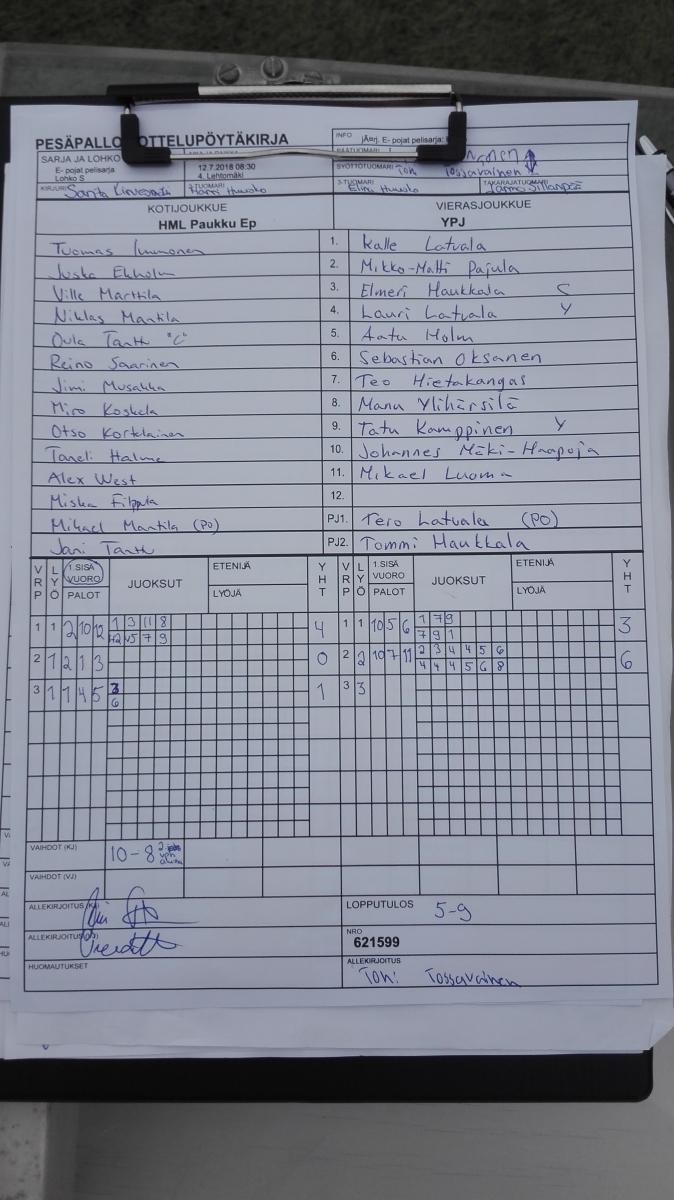 PESÄPALLO OTTELUPÖYTÄKIRJA
INFO jÄarj. E- pojat pelisarja:
SARJA JA LOHKO
E- pojat pelisarja
Lohko S
12.7.2018 08:30
4. Lehtomäki
SYÖTTÖTUOMARI Toni Tossavainen
KIRJURI TUOMARI Harri Huusko
3-TUOMARI Elina Huusko TAKARAJATUOMARI Jarmo Sillanpää
KOTIJOUKKUE VIERASJOUKKUE
HML Paukku Ep YPJ
Tuomas Immonen 1. Kalle Latvala
Juska Ekholm 2. Mikko-Matti Pajula
Ville Marttila 3. Elmeri Haukkala C
Niklas Mantila 4. Lauri Latvala Y
Oula Tantt "C" 5. Aatu Holm
Reino Saarinen 6. Sebastian Oksanen
Jimi Musakka 7. Teo Hietakangas
Miro Koskela 8. Manu Ylihärsilä
Otso Kortelainen 9. Tatu Kamppinen Y
Taneli Halme 10. Johannes Mäki-Haapoja
Alex West 11. Mikael Luoma
Miska Filppula 12.
Mikael Mantila (PO) PJ1. Tero Latvala (PO)
Jani Tantt PJ2. Tommi Haukkala
VRP LYÖ 1.SISÄ VUORO PALOT JUOKSUT ETENIJÄ LYÖJÄ YHT VRP LYÖ 1.SISÄ VUORO PALOT JUOKSUT ETENIJÄ LYÖJÄ YHT
1 1 2 10 12 1 3 11 8 4 1 1 10 5 6 1 7 9 3
7 9 7 9 1
2 1 2 1 3 0 2 2 10 7 11 2 3 4 4 5 6 6
4 4 4 5 6 8
3 1 1 4 5 3 1 3 3
6
VAIHDOT (KJ) 10-8
VAIHDOT (VJ)
ALLEKIRJOITUS LOPPUTULOS 5-9
ALLEKIRJOITUS NRO
621599
HUOMAUTUKSET ALLEKIRJOITUS
Toni Tossavainen